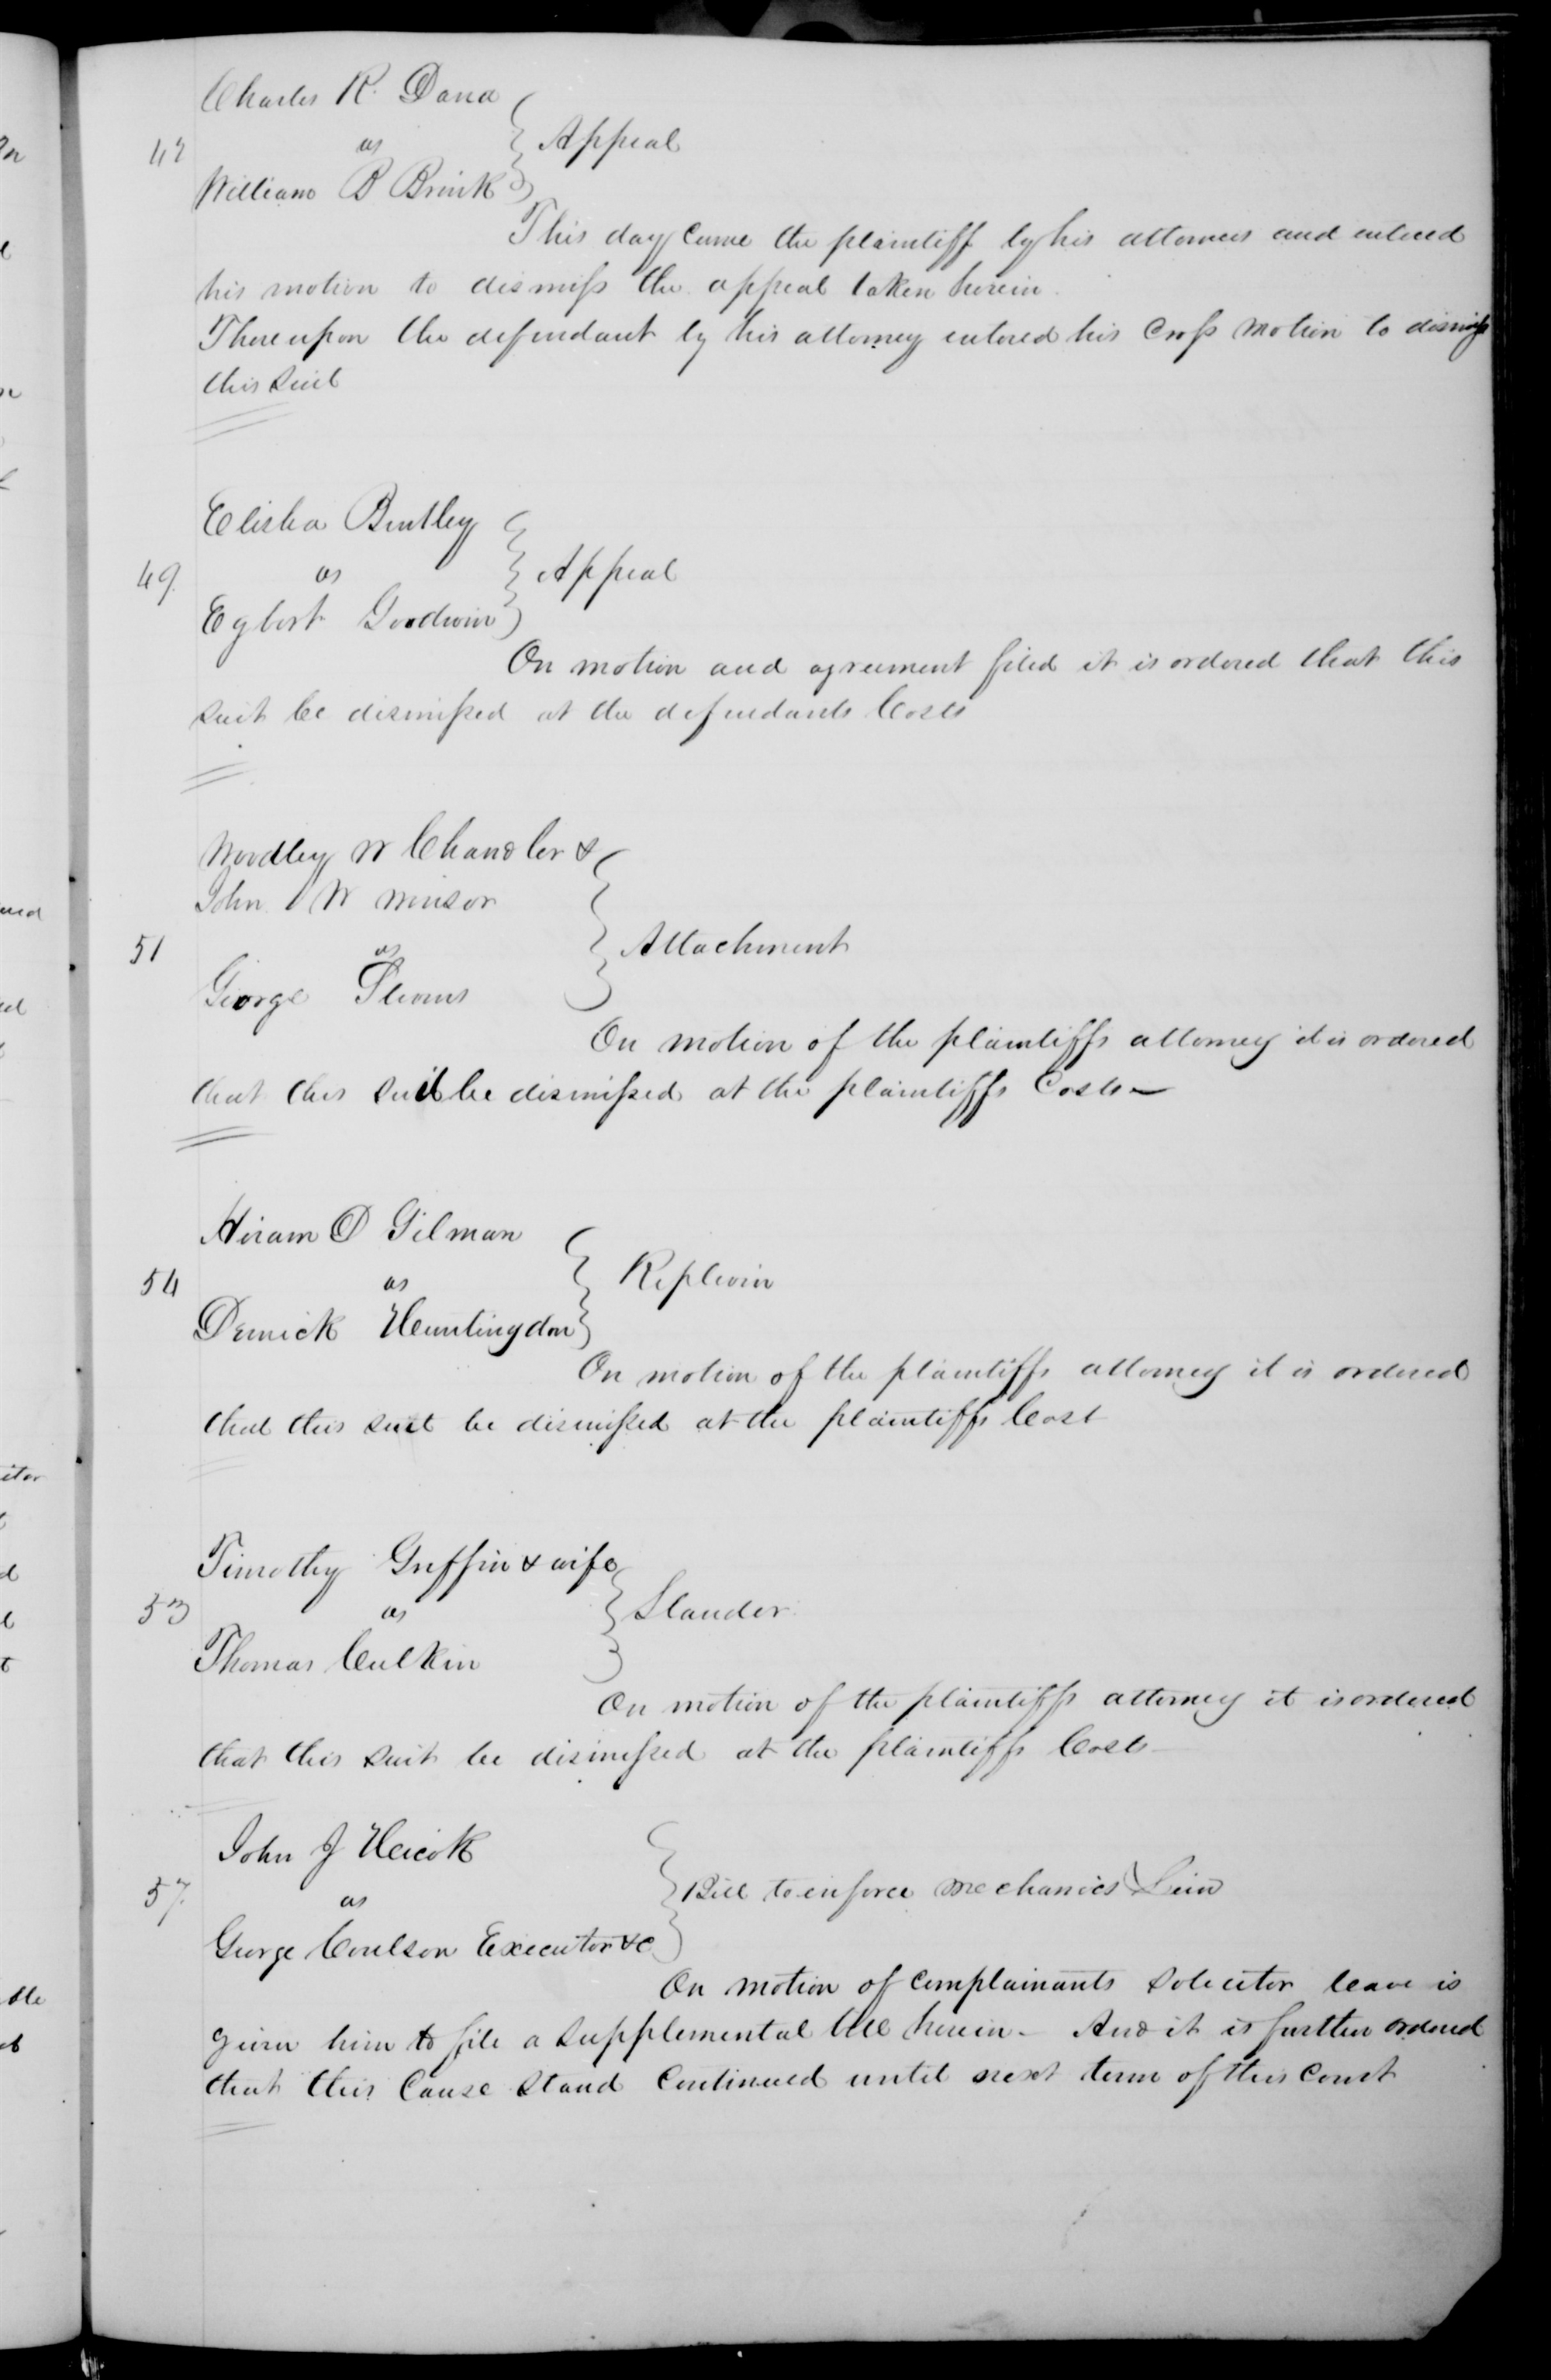 Charles R. Dana
47 vs } Appeal
William B Brink
This day came the plaintiff by his attorneys and entered
his motion to dismiss the appeal taken herein.
Thereupon the defendant by his attorney entered his cross motion to dismiss
this suit
Elisha Bentley
49. vs } Appeal
Egbert Goodwin
On motion and agreement filed it is ordered that this
suit be dismissed at the defendants Costs
Woodley W Chandler &
John W Minsor
51 vs } Attachment
George Stevens
On motion of the plaintiffs attorney it is ordered
that this suit be dismissed at the plaintiffs Costs—
Hiram D Gilman
54 vs } Replevin
Derrick Huntingdon
On motion of the plaintiffs attorney it is ordered
that this suit be dismissed at the plaintiffs Cost
Timothy Griffin & wife
53 vs } Slander
Thomas Culkin
On motion of the plaintiffs attorney it is ordered
that this suit be dismissed at the plaintiffs Costs—
John J
57. vs } Bill to enforce mechanics Lien
George Coulson Executor &c
On motion of complainants solicitor leave is
given him to file a supplemental bill herein— And it is further ordered
that this Cause stand Continued until next term of this Court